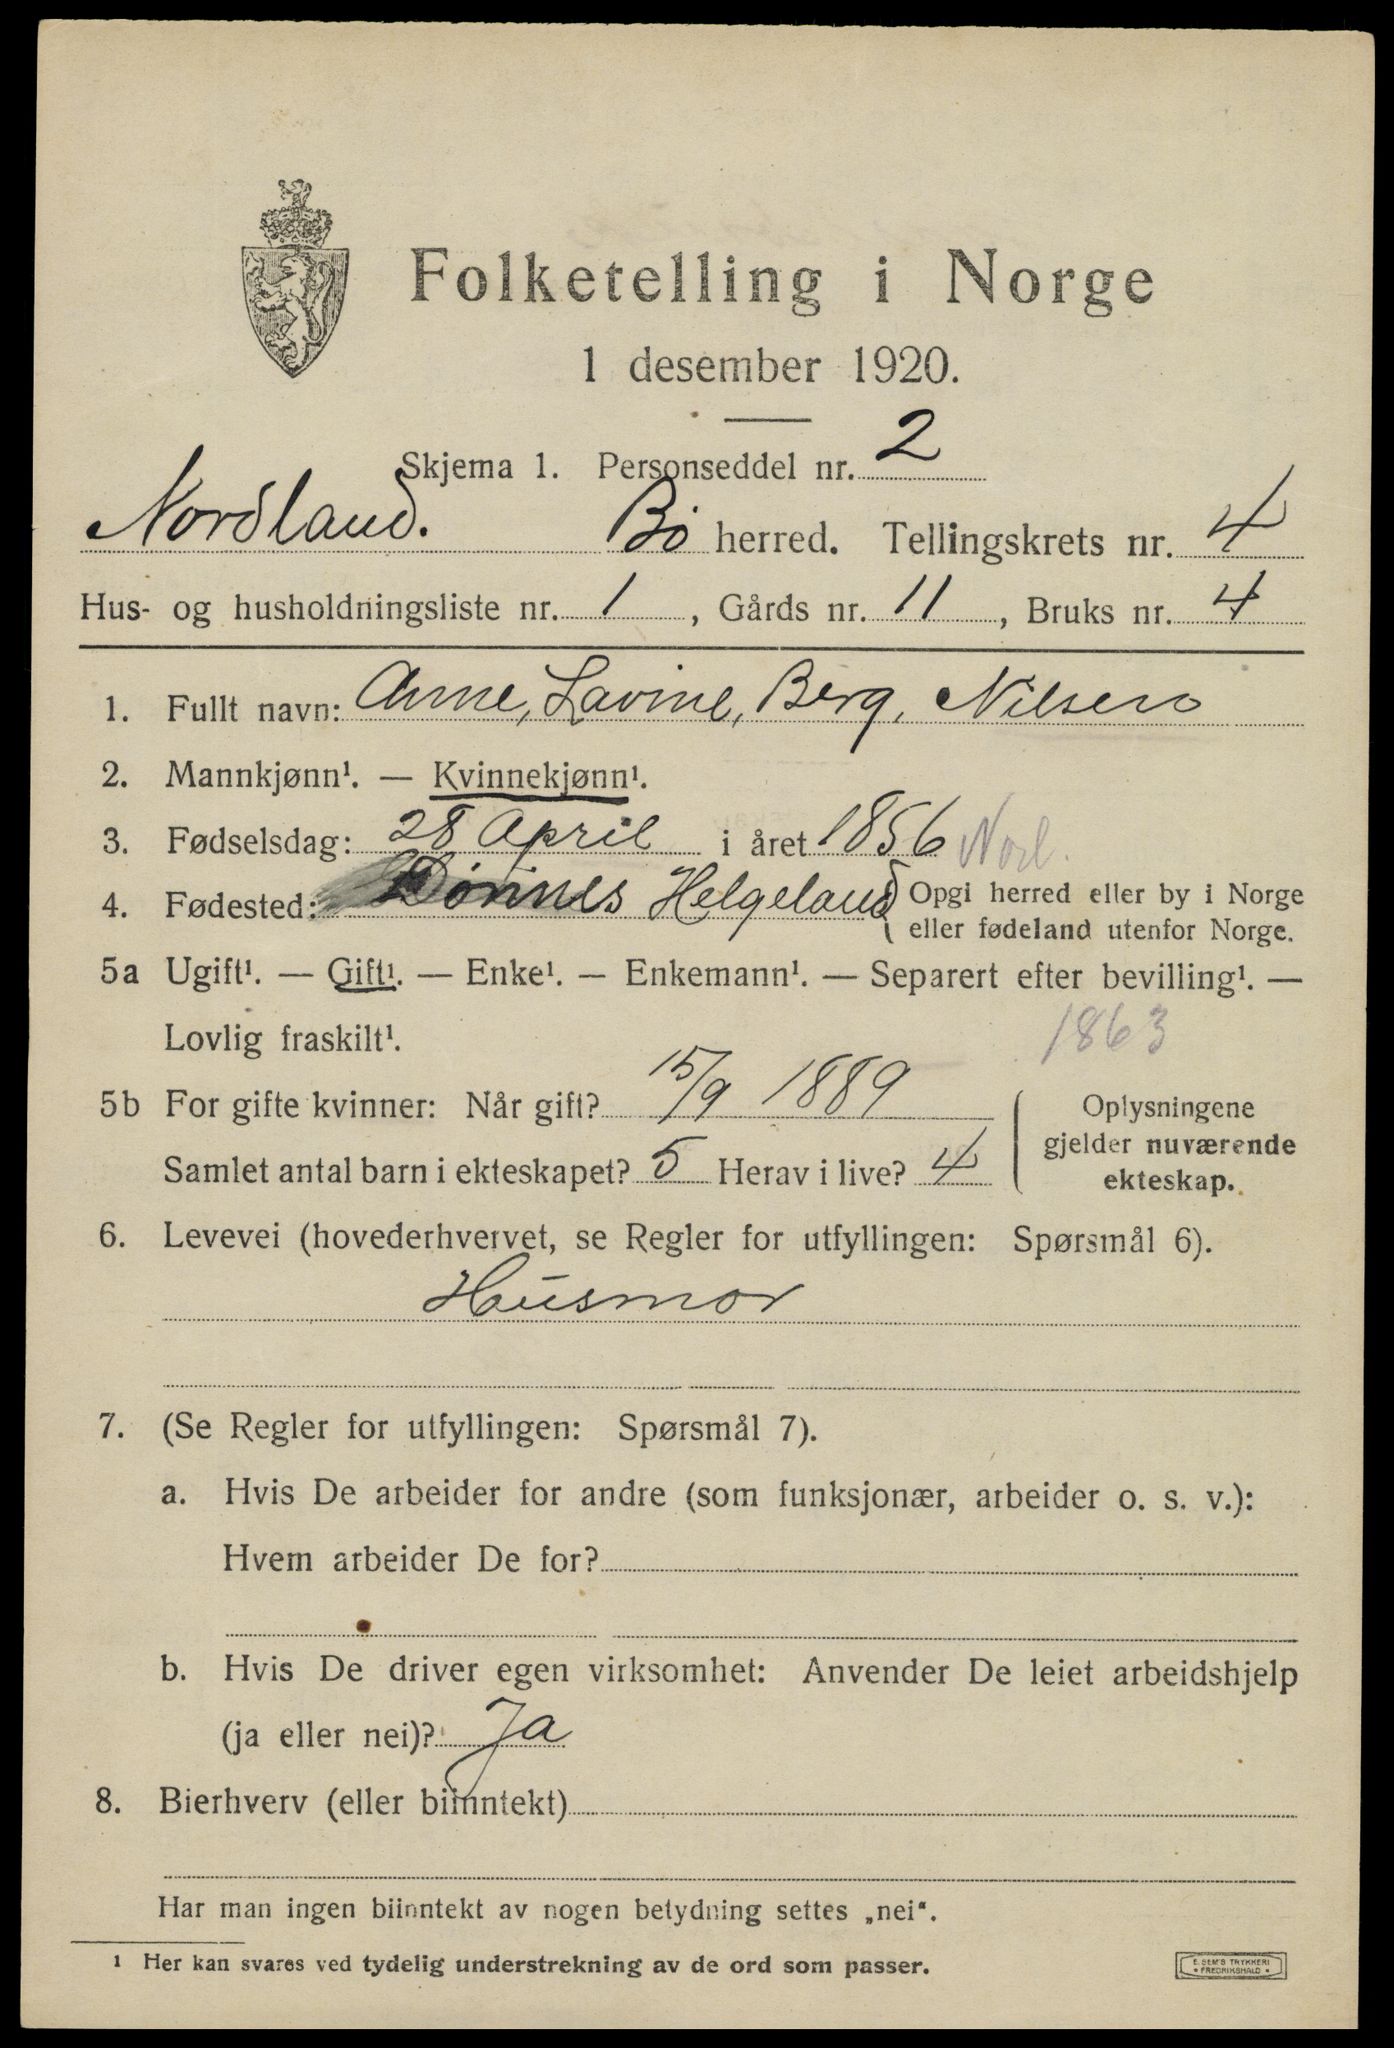 Folketelling i Norge
1 desember 1920.
Skjema 1. Personseddel nr. 2
Nordland. Bø herred. Tellingskrets nr. 4
Hus- og husholdningsliste nr. 1, Gårds nr. 11, Bruks nr. 4
1. Fullt navn: Anne, Lavine, Berg, Nilsen
2. Mannkjønn¹. — Kvinnekjønn¹.
3. Fødselsdag: 28 April i året 1856 Norl.
4. Fødested: Dønnes Helgeland { Opgi herred eller by i Norge
eller fødeland utenfor Norge.
5a Ugift¹. — Gift¹. — Enke¹. — Enkemann¹. — Separert efter bevilling¹. —
Lovlig fraskilt¹. 1863
5b For gifte kvinner: Når gift? 15/9 1889
Samlet antal barn i ekteskapet? 5 Herav i live? 4
Oplysningene
gjelder nuværende
ekteskap.
6. Levevei (hovederhvervet, se Regler for utfyllingen: Spørsmål 6).
Husmor
7. (Se Regler for utfyllingen: Spørsmål 7).
a. Hvis De arbeider for andre (som funksjonær, arbeider o. s. v.):
Hvem arbeider De for?
b. Hvis De driver egen virksomhet: Anvender De leiet arbeidshjelp
(ja eller nei)? Ja
8. Bierhverv (eller biinntekt)
Har man ingen biinntekt av nogen betydning settes „nei“.
¹ Her kan svares ved tydelig understrekning av de ord som passer.
E. SEM'S TRYKKERI
• FREDRIKSHALD •